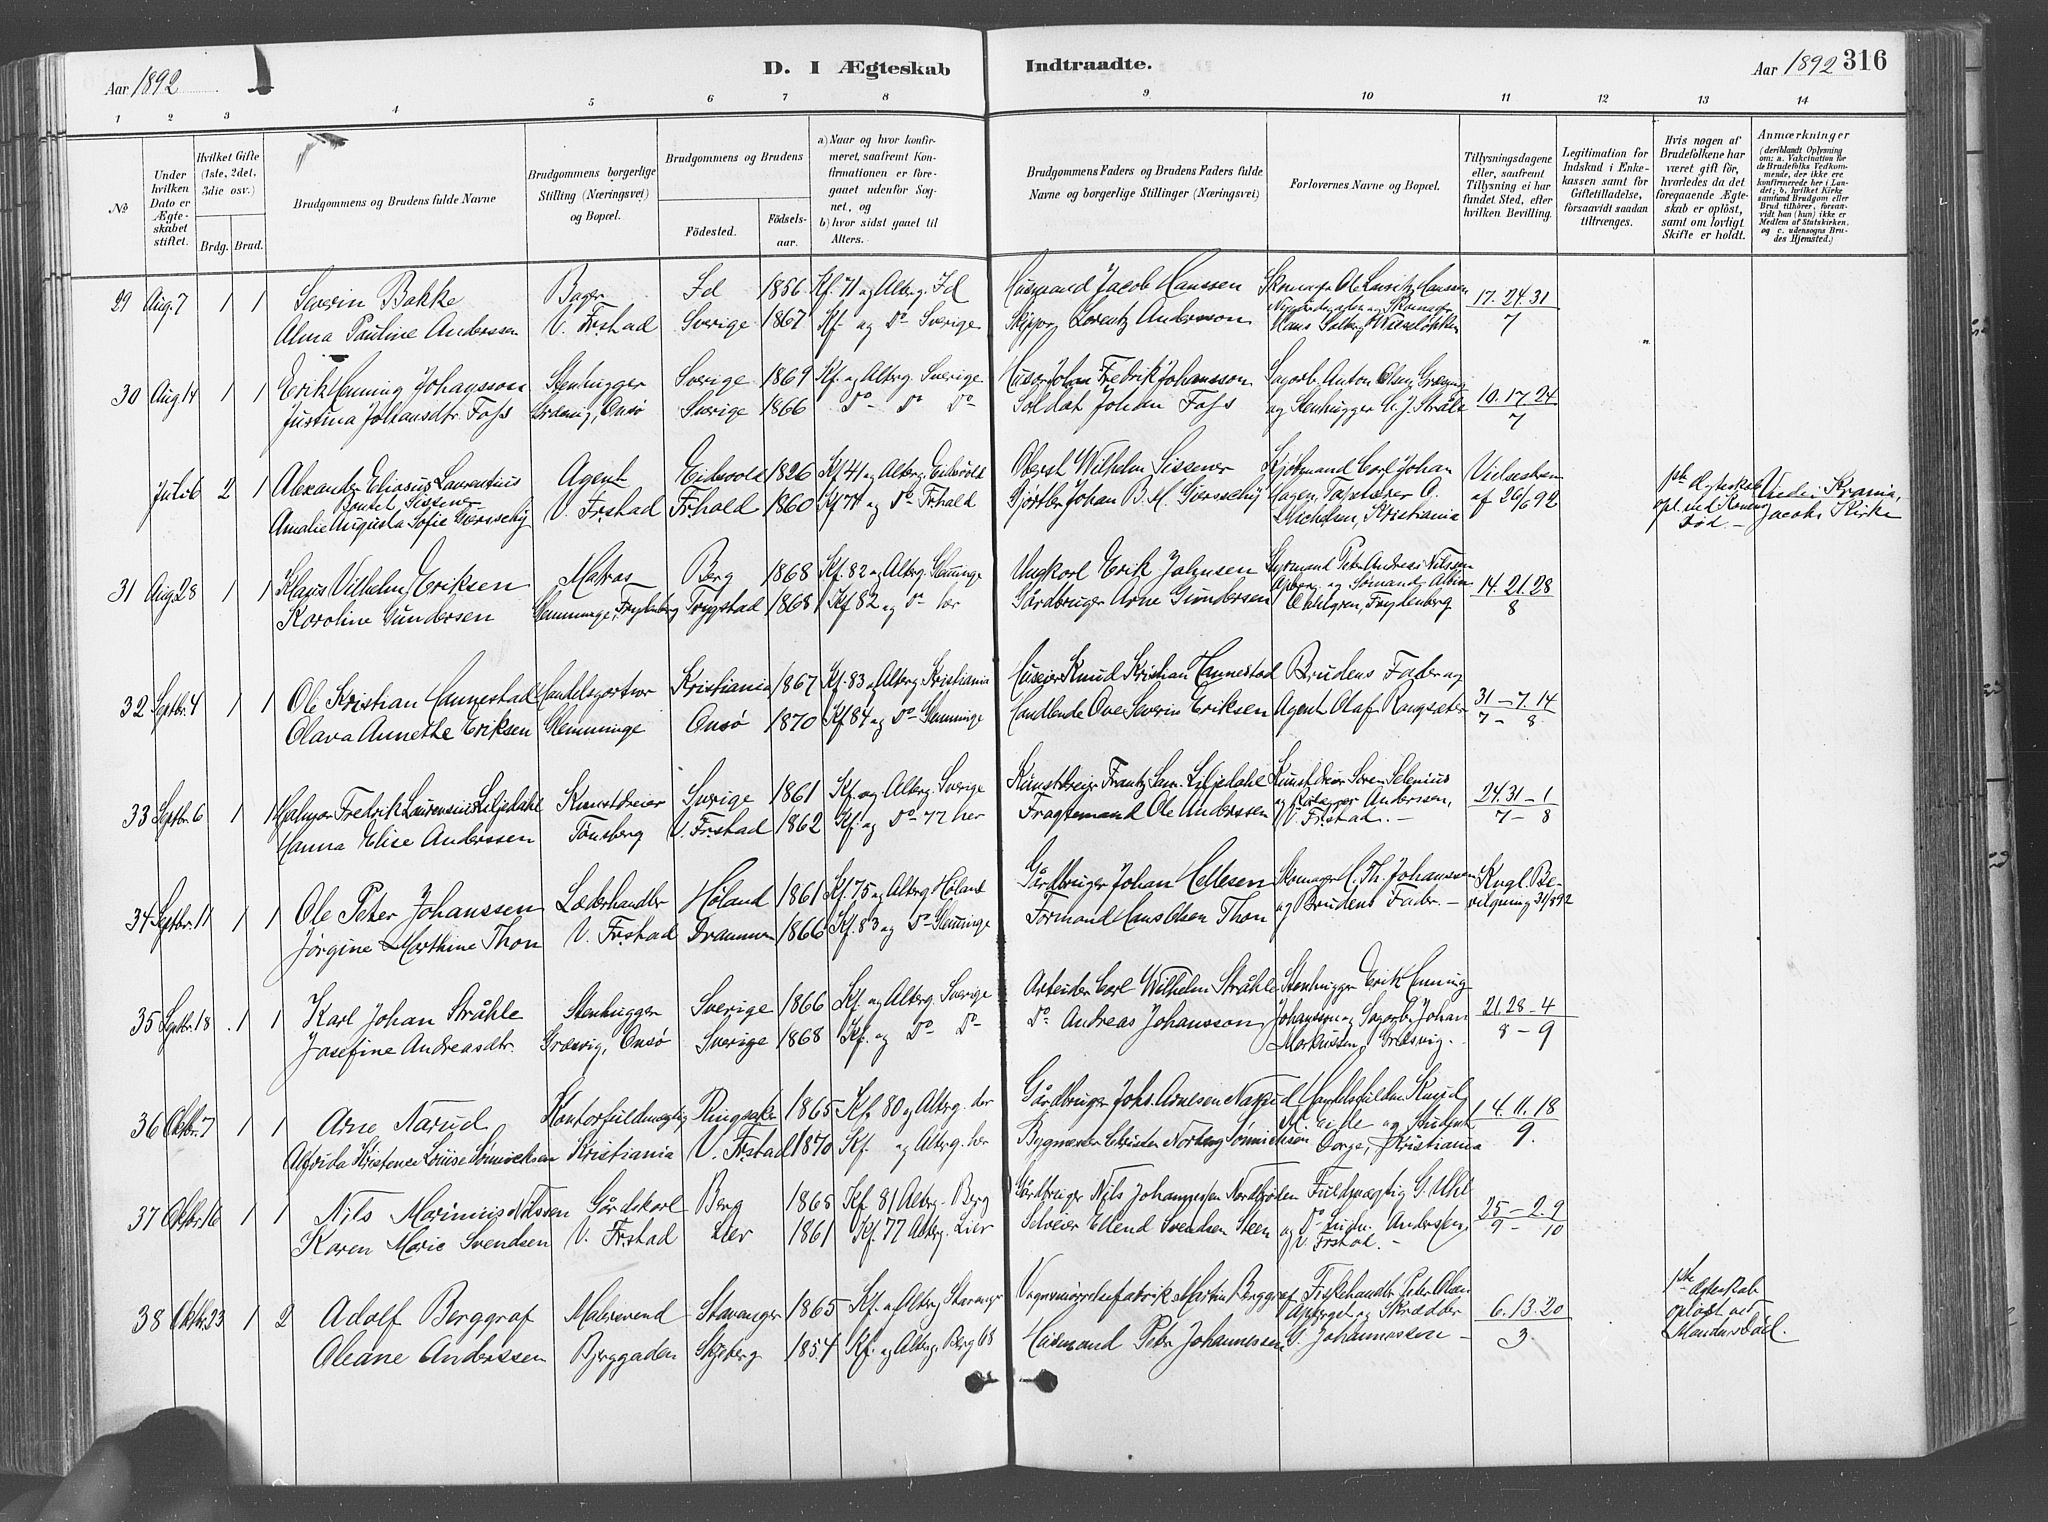 Aar 1892
D. I Ægteskab Indtraadte.
Aar 1892 316
1 2 3 4 5 6 7 8 9 10 11 12 13 14
№
Under hvilken Dato er Ægteskabet stiftet.
Hvilket Gifte (1ste, 2det, 3die osv.)
Brdg. Brud.
Brudgommens og Brudens fulde Navne
Brudgommens borgerlige Stilling (Næringsvei) og Bopæl.
Brudgommens og Brudens
Födested.
Födselsaar.
a) Naar og hvor konfirmeret, saafremt Konfirmationen er foregaaet udenfor Sognet, og
b) hvor sidst gaaet til Alters.
Brudgommens Faders og Brudens Faders fulde Navne og borgerlige Stillinger (Næringsvei)
Forlovernes Navne og Bopæl.
Tillysningsdagene eller, saafremt Tillysning ei har fundet Sted, efter hvilken Bevilling.
Legitimation for Indskud i Enkekassen samt for Giftetilladelse, forsaavidt saadan tiltrænges.
Hvis nogen af Brudefolkene har været gift før, hvorledes da det foregaaende Ægteskab er opløst, samt om lovligt Skifte er holdt.
Anmærkninger (deriblandt Oplysning om: a. Vakcination for de Brudefolks Vedkommende, der ikke ere konfirmerede her i Landet; b. hvilket Kirkesamfund Brudgom eller Brud tilhører, forsaavidt han (hun) ikke er Medlem af Statskirken, og c. udensogns Brudes Hjemsted.)
29 Aug. 7 1 1 Severin Bakke Bager Id 1856 Kf. 71 og Alterg. Id Husmand Jacob Hanssen Skomager Ole Hanssen 17. 24. 31
Alma Pauline Anderssen V. Frstad Sverige 1867 Kf. og Do Sverige Skipper Lorentz Andersson Hans Solberg 7
30 Aug 14 1 1 Erik Henning Johansson Stenhugger Sverige 1869 Kf. og Alterg. Sverige Johan Fredrik Johansson Sagarb. Anton Olsen Græsvig 10. 17. 24
Justina Johansdtr. Foss Græsvig, Onsø Sverige 1866 Do Do Do Soldat Johan Foss og Stenhugger C. J. Stråle 7
Juli 6 2 1 Alexander Eliasius Laurentius Sissener Agent Eidsvold 1826 Kf 41 og Alterg. Eidsvold Oberst Wilhelm Sissener Kjøbmand Carl Johan 1ste Ægteskab Viede i Krania,
Amalie Augusta Sofie V. Frstad Frhald 1860 Kf 74 og Do Frhald Johan B. M. Hagen, Kristiania af 26/6 92 opl. ved Konens Død. — Jacobs Kirke
31 Aug 28 1 1 Klaus Vilhelm Eriksen Matros Berg 1868 Kf. 82 og Alterg. Glemminge Ungkarl Erik Johnsen Styrmand Petr. Andreas Nilssen 14. 21. 28
Karoline Gundersen Glemminge, Frydenberg Trygstad 1868 Kf 82 og Do her Gårdbruger Arne Gundersen og Sømand Albin Frydenberg 8
32 Septbr. 4 1 1 Ole Kristian Hannestad Handelsgartner Kristiania 1867 Kf. 83 og Alterg. Kristiania Huseier Knud Kristian Hannestad Brudens Fader og 31 – 7. 14
Olava Annethe Eriksen Glemminge Onsø 1870 Kf 84 og Do Glemminge Handlende Ove Severin Eriksen Agent Olaf 7 – 8
33 Septbr. 6 1 1 Hjalmar Fredrik Laurensius Liljedahl Kunstdreier Sverige 1861 Kf. og Alterg. Sverige Kunstdreier Frantz Sam. Liljedahl Kunstdreier Søren Selenius 24. 31 – 1
Hanna Elise Anderssen Tønsberg V. Frstad 1862 Kf. og Do 77 her Fragtemand Ole Anderssen Anderssen, V. Frstad. — 7 – 8
34 Septbr. 11 1 1 Ole Peter Johanssen Læderhandler Høland 1861 Kf. 75 og Alterg. Høland Gårdbruger Johan Hellesen Skomager H. Th. Johanssen Kngl. Be-
Jørgine Marthine Thon V. Frstad Drammen 1866 Kf. 83 og Do Glemminge Formand Hans Olsen Thon og Brudens Fader. — vilgning 31/8 92
35 Septbr. 18 1 1 Karl Johan Stråhle Stenhugger Sverige 1866 Kf. og Alterg. Sverige Arbeider Carl Wilhelm Stråhle Stenhugger Erik Henning 21. 28 – 4
Josefine Andreasdtr. Græsvig, Onsø Sverige 1868 Kf. og Do Do Do Andreas Johansson Johansson og Sagarb. Johan Markussen, Græsvig. 8 – 9
36 Oktbr. 7 1 1 Arne Narud Kontorfuldmægtig Ringsaker 1865 Kf. 80 og Alterg. der Gårdbruger Johs. Arnesen Narud Knud 4. 11. 18
Alfrida Kristense Louise Sønnichsen Kristiania V. Frstad 1870 Kf. og Alterg. her Bygmester Christen Sønnichsen og Student Kristiania 9.
37 Oktbr. 16 1 1 Nils Marinius Nilssen Gårdskarl Berg 1865 Kf 81 Alterg. Berg Gårdbruger Nils Johannessen Fuldmægtig G. Uhl 25 – 2. 9
Karen Marie Svendsen V. Frstad Lier 1861 Kf. 77 Alterg. Lier Selveier Ellend Svendsen Steen og Do Anderssen, V. Frstad. — 9 – 10
38 Oktbr. 23 1 2 Adolf Berggraf Malersvend Stavanger 1865 Kf. og Alterg. Stavanger Martin Berggraf Fiskehandler Peter Olsen 6. 13. 20 1ste Ægteskab opløst ved Mandens Død.
Oleane Anderssen Bjerggaden Skjeberg 1854 Kf. og Alterg. Berg 68 Husmand Petr. Johannessen og Skrædder G. Johannesson — 3